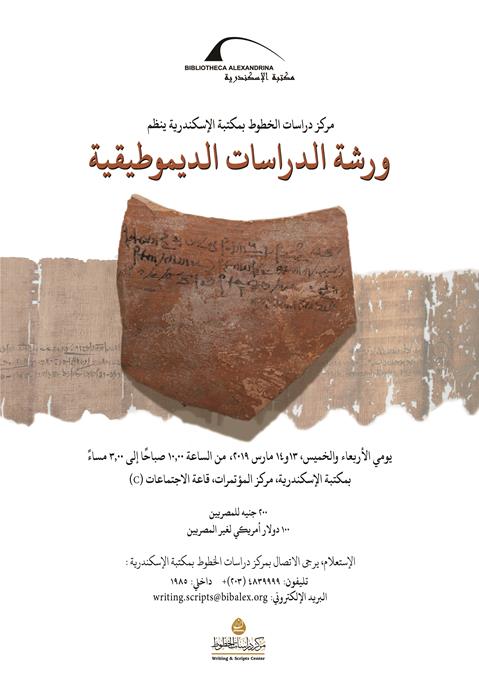 BIBLIOTHECA ALEXANDRINA
مكتبة الإسكندرية
مركز دراسات الخطوط بمكتبة الإسكندرية ينظم
ورشة الدراسات الديموطيقية
يومي الأربعاء والخميس، ١٣و١٤ مارس ٢٠١٩، من الساعة ١٠,٠٠ صباحًا إلى ٣,٠٠ مساءً
بمكتبة الإسكندرية، مركز المؤتمرات، قاعة الاجتماعات (C)
٢٠٠ جنيه للمصريين
١٠٠ دولار أمريكي لغير المصريين
الإستعلام، يرجى الاتصال بمركز دراسات الخطوط بمكتبة الإسكندرية :
تليفون: ٤٨٣٩٩٩٩ (٢٠٣)+ داخلي: ١٩٨٥
البريد الإلكتروني: writing.scripts@bibalex.org
مركز دراسات الخطوط
Writing & Scripts Center